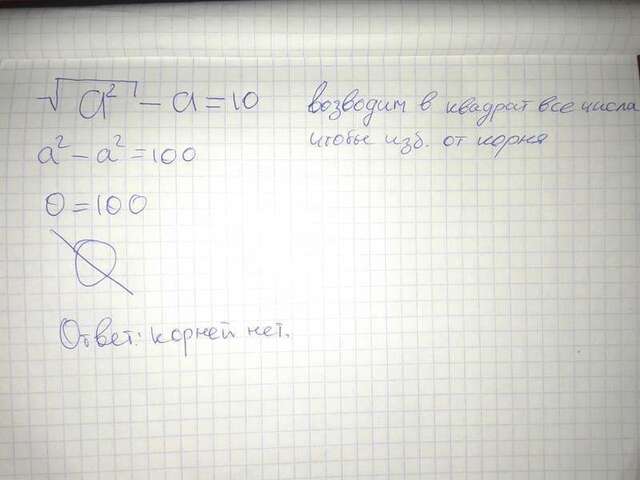 √a² - a = 10 возводим в квадрат все числа
чтобы изб. от корня
a² - a² = 100
0 = 100
∅
Ответ: корней нет.